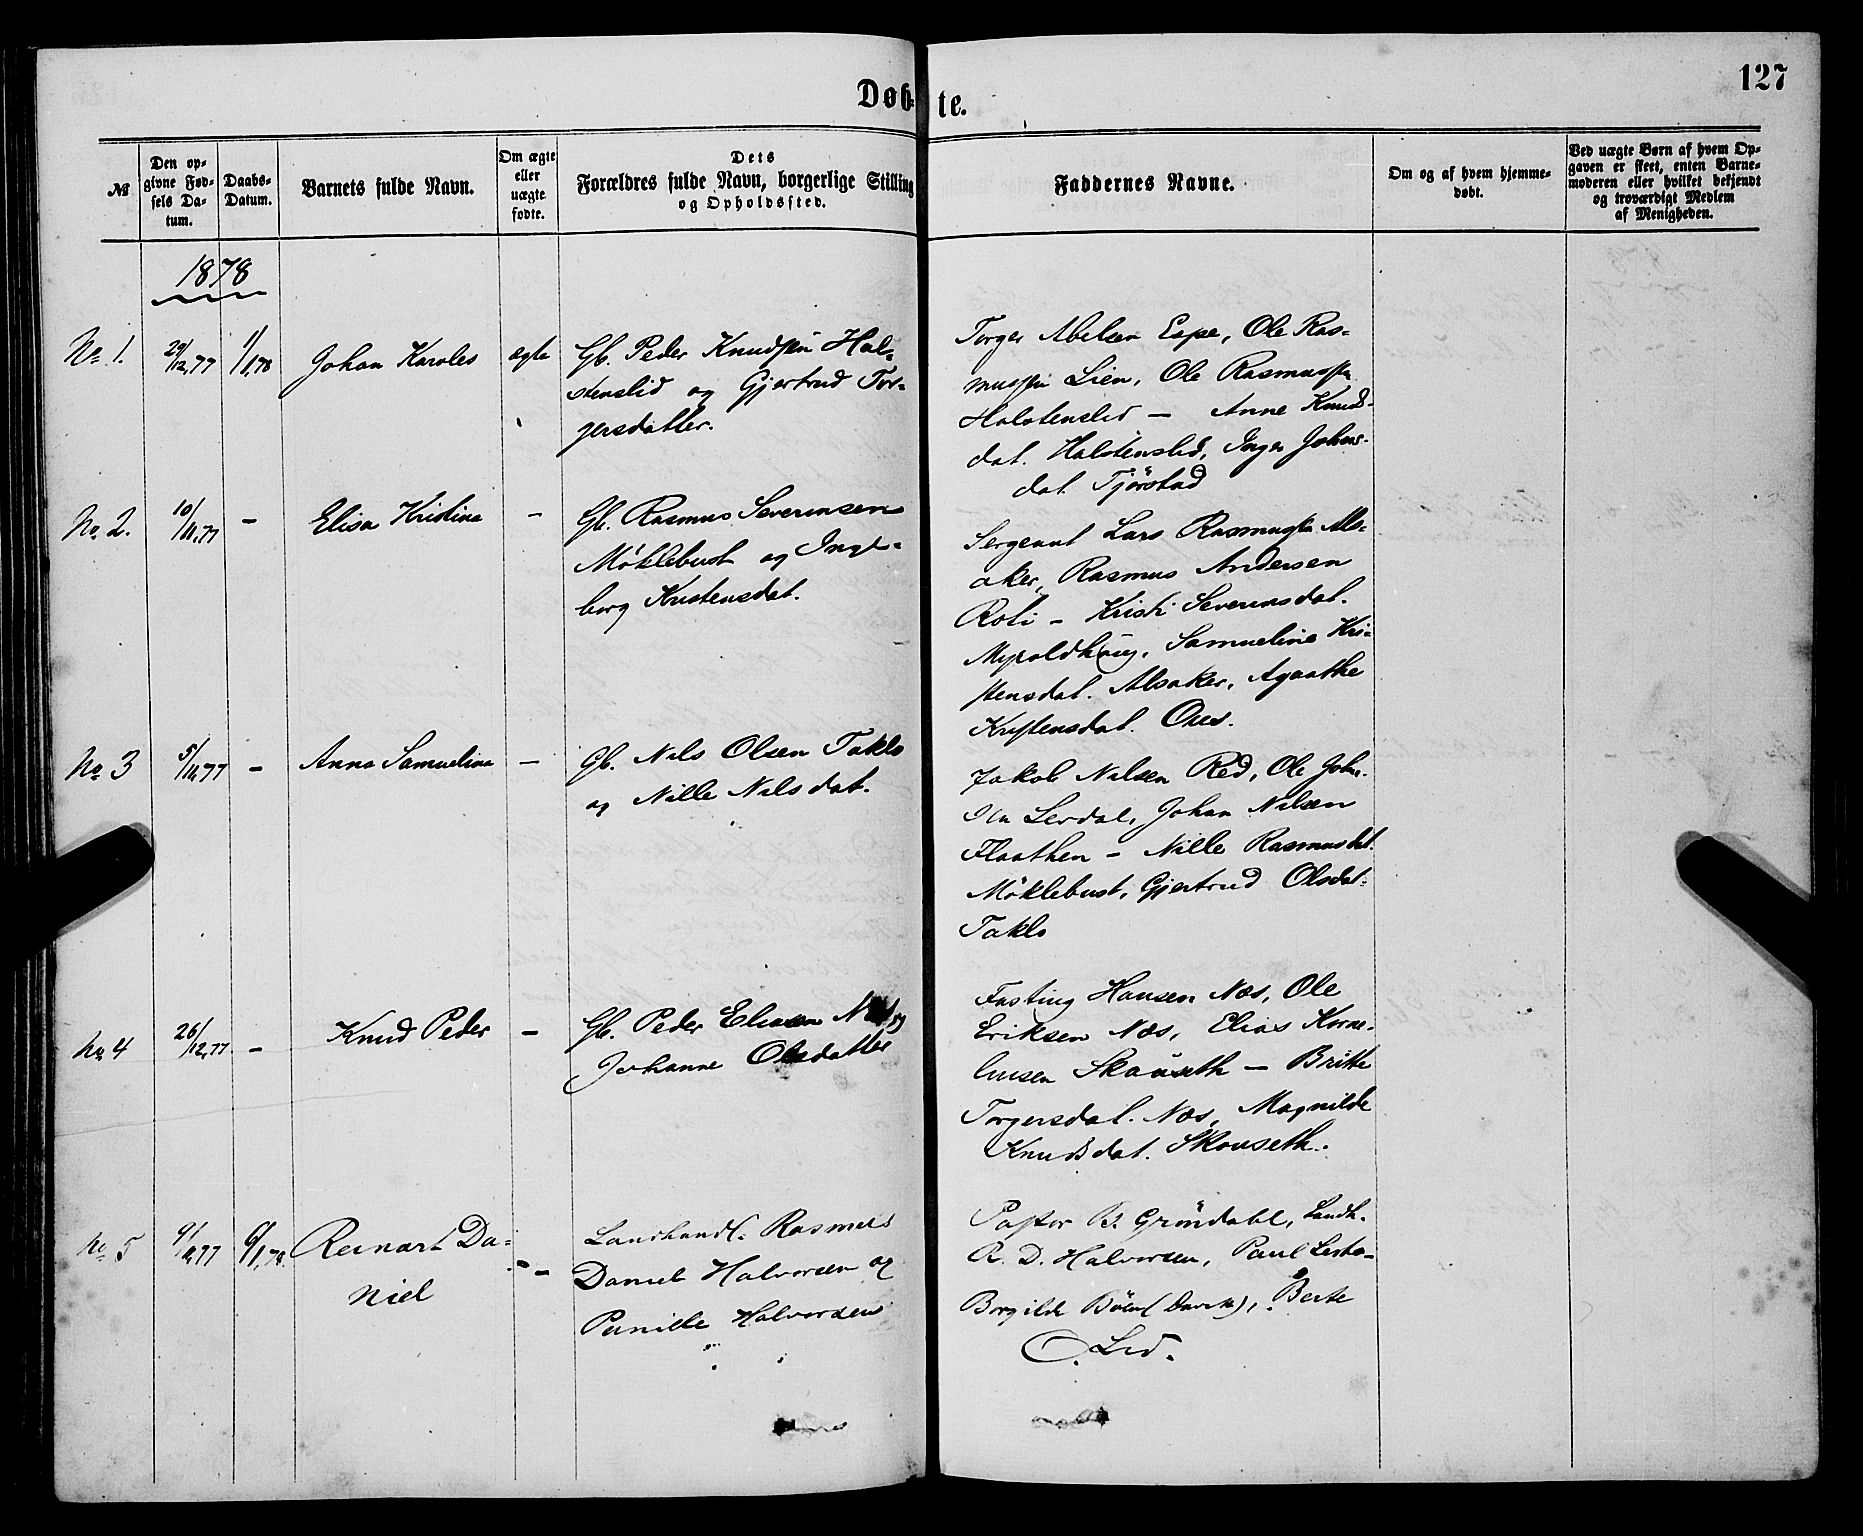 Døb-te.
127
№
Den op-
givne Fød-
sels Da-
tum.
Daabs-
Datum.
Barnets fulde Navn.
Om ægte
eller
uægte
fødte.
Dets
Forældres fulde Navn, borgerlige Stilling
og Opholdssted.
Faddernes Navne.
Om og af hvem hjemme-
døbt.
Ved uægte Børn af hvem Op-
gaven er skeet, enten Barne-
moderen eller hvilket bekjendt
og troværdigt Medlem
af Menigheden.
1878
No 1.
29/12,77
1/1,78
Johan Karoles
ægte
Gb. Peder Knudsen Hal-
stenslid og Gjertrud Tor-
gersdatter.
Torger Abelsen Espe, Ole Ras-
mussen Lien, Ole Rasmussen
Halstenslid — Anne Knuds-
dat. Halstenslid, Inger Johns-
dat. Tjörstad
No 2.
10/11,77
-
Elisa Kristina
-
Gb. Rasmus Severinsen
Möklebust og Inge-
borg Kristensdat.
Sergeant Lars Rasmussen Als-
aker, Rasmus Andersen
Roti - Kristi Severinsdat.
Myroldhaug, Samueline Kri-
stensdat. Alsaker, Agaathe
Kristensdat. Ones.
No 3
5/11,77
-
Anna Samuelina
-
Gb. Nils Olsen Taklo
og Nille Nilsdat.
Jakob Nilsen Red, Ole John-
sen Lerdal, Johan Nilsen
Flaathen - Nille Rasmusdat.
Möklebust, Gjertrud Olsdat.
Taklo
No 4
26/12,77
-
Knud Peder
-
Gb. Peder Eliasen Næs og
Johanne Olsdatter
Fasting Hansen Næs, Ole
Eriksen Næs, Elias Korne-
liusen Skauseth - Britte
Torgersdat. Næs, Magnilde
Knudsdat. Skouseth.
No 5
9/11,77
6/1,78.
Reinart Da-
niel
-
Landhandl. Rasmus
Daniel Halvorsen og
Pernille Halvorsen
Pastor B. Gröndahl, Landh.
R. D. Halvorsen, Paul
Borgilde Böen, Berte
O. Lid.